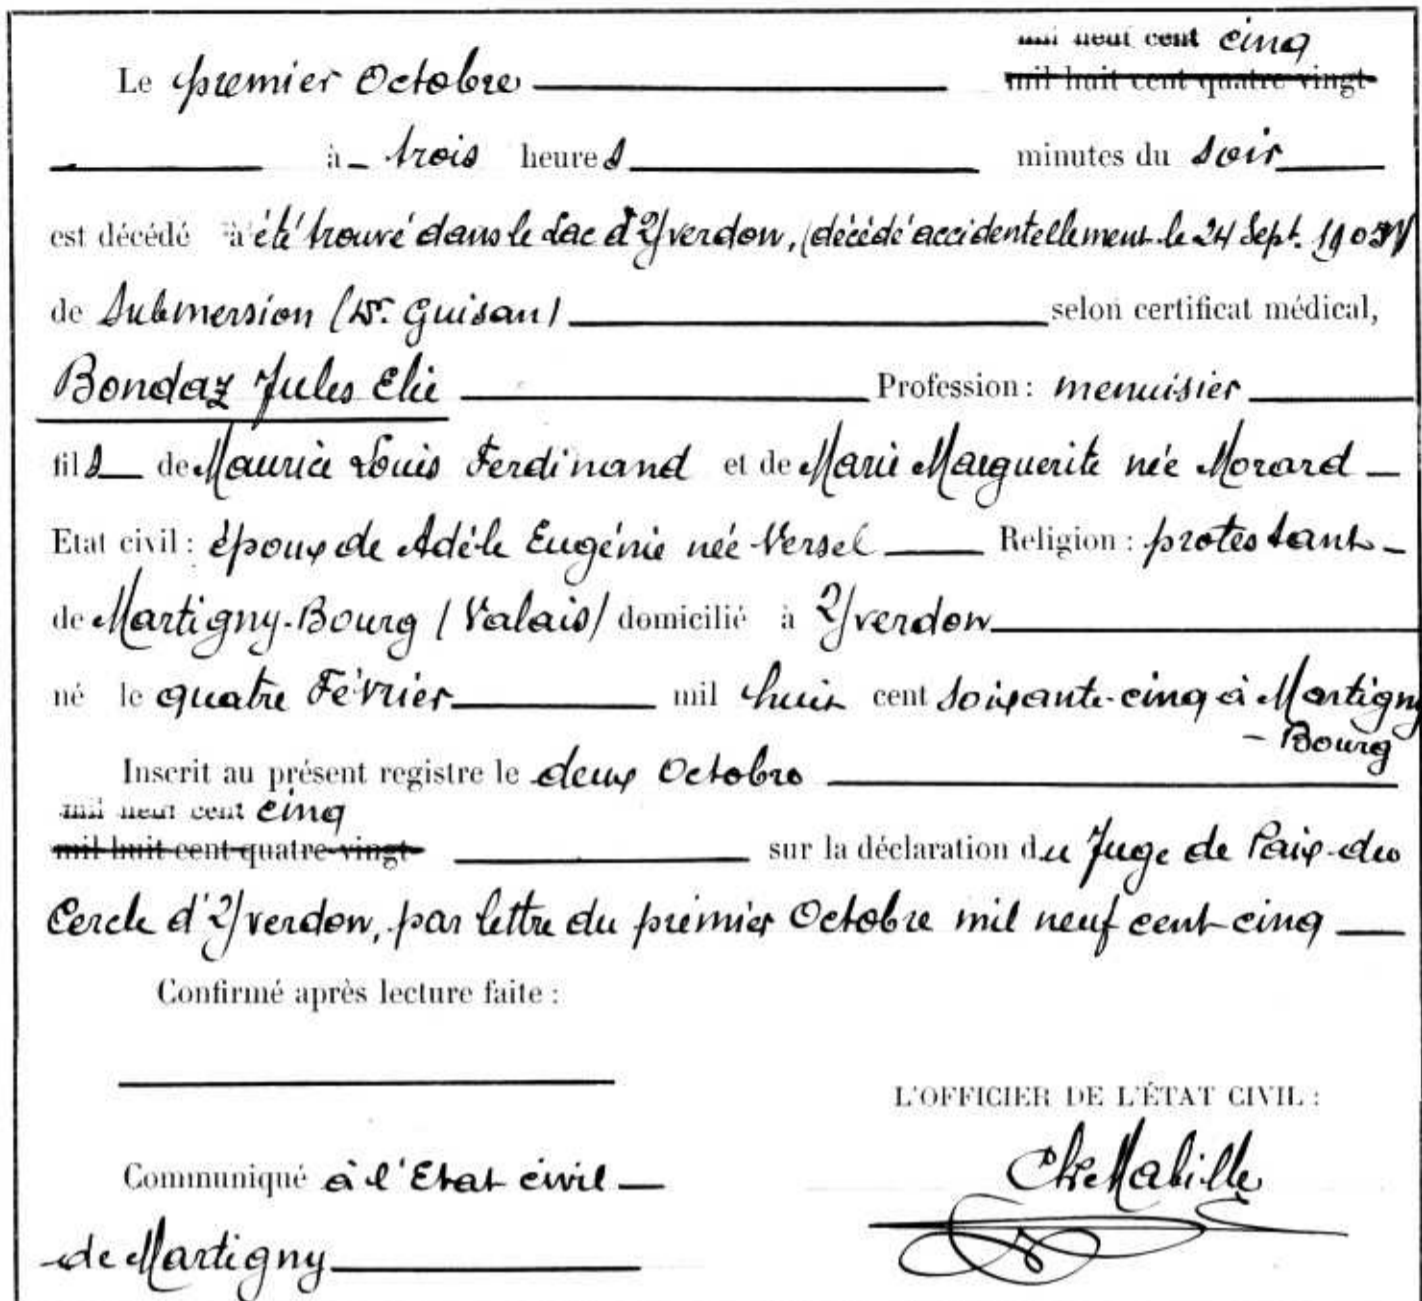 mil neuf cent cinq
Le premier Octobre mil huit cent quatre vingt
à trois heures minutes du soir
est décédé à été trouvé dans le Lac d'Yverdon, (décédé accidentellement le 24 Sept. 1905)
de Submersion (Dr. Guisan) selon certificat médical,
Bondaz Jules Elie Profession : menuisier
fils de Maurice Louis Ferdinand et de Marie Marguerite née Morard
Etat civil : époux de Adèle Eugénie née Versel Religion : protestant
de Martigny-Bourg (Valais) domicilié à Yverdon
né le quatre Février mil huit cent soixante-cinq à Martigny
- Bourg
Inscrit au présent registre le deux Octobre
mil neuf cent cinq
mil huit cent quatre-vingt sur la déclaration du Juge de Paix du
Cercle d'Yverdon, par lettre du premier Octobre mil neuf cent cinq
Confirmé après lecture faite :
L'OFFICIER DE L'ÉTAT CIVIL :
Communiqué à l'Etat civil
de Martigny